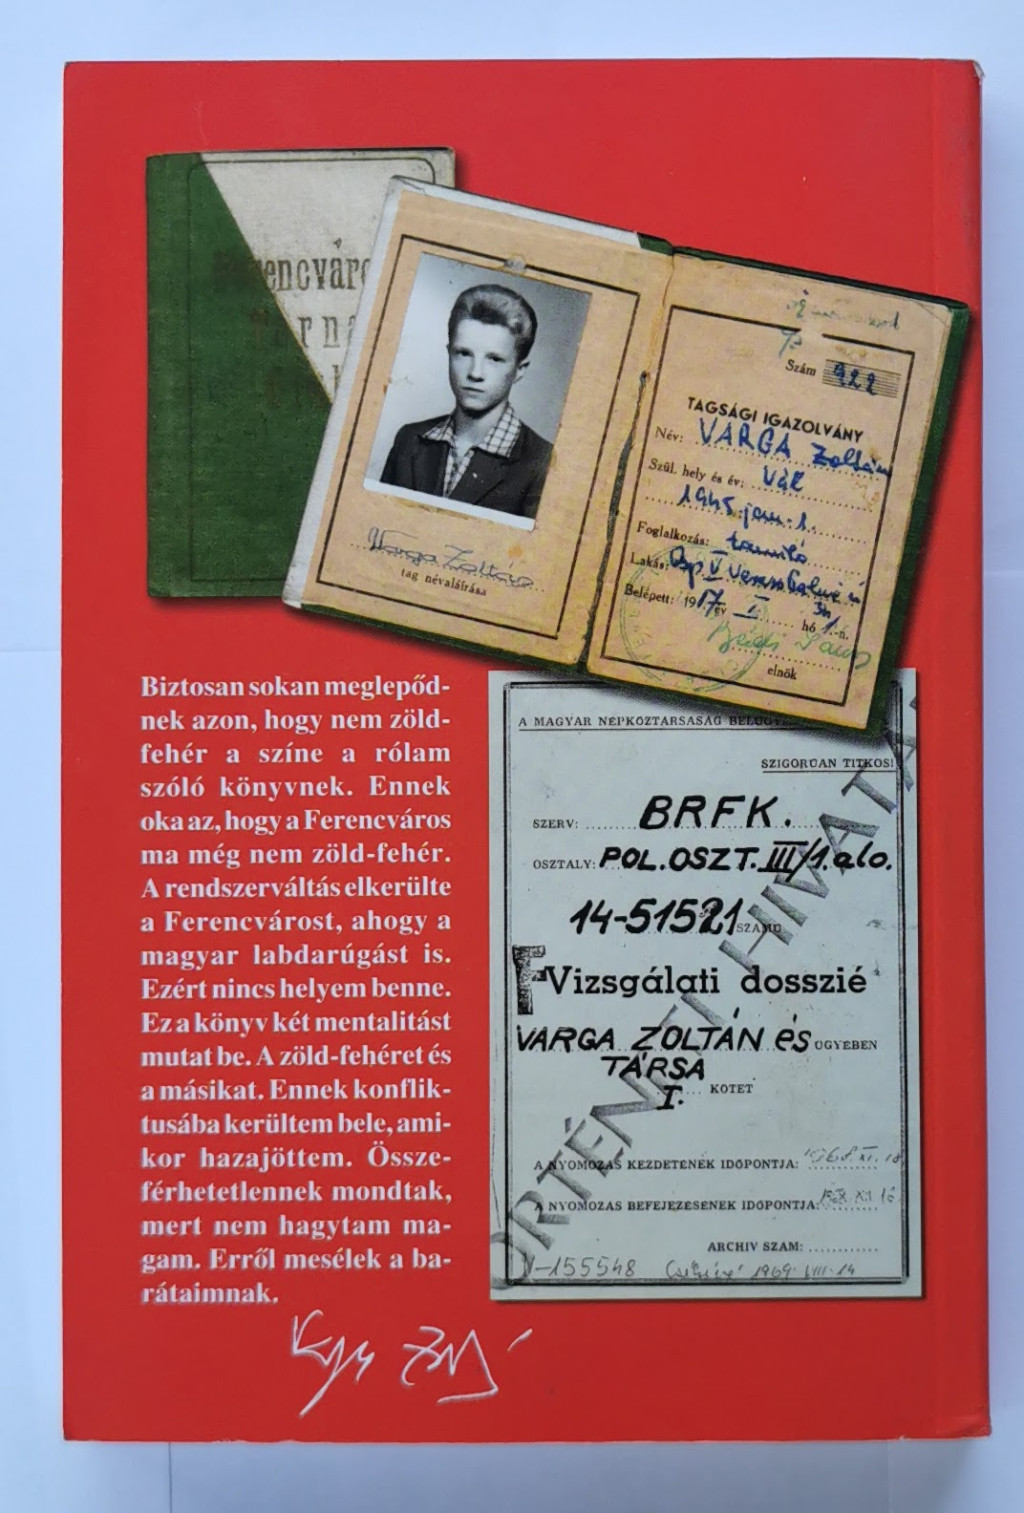 Ferencváro
Torna
Varga Zoltán
tag névaláírása
Szám 922
TAGSÁGI IGAZOLVÁNY
Név: VARGA Zoltán
Szül. hely és év: Vál
1945 jan. 1.
Foglalkozás: tanuló
Lakás: Bp V
Belépett: 1957 év I. hó 1.-n.
elnök
Biztosan sokan meglepőd-
nek azon, hogy nem zöld-
fehér a színe a rólam
szóló könyvnek. Ennek
oka az, hogy a Ferencváros
ma még nem zöld-fehér.
A rendszerváltás elkerülte
a Ferencvárost, ahogy a
magyar labdarúgást is.
Ezért nincs helyem benne.
Ez a könyv két mentalitást
mutat be. A zöld-fehéret és
a másikat. Ennek konflik-
tusába kerültem bele, ami-
kor hazajöttem. Össze-
férhetetlennek mondtak,
mert nem hagytam ma-
gam. Erről mesélek a ba-
rátaimnak.
A MAGYAR NÉPKÖZTARSASÁG BELÜGY
SZIGORÚAN TITKOS!
SZERV: BRFK.
OSZTALY: POL. OSZT. III/1. alo.
14-51521 SZAMÚ
F Vizsgálati dosszié
VARGA ZOLTÁN és ÜGYÉBEN
TÁRSA
I. KÖTET
A NYOMOZAS KEZDETÉNEK IDŐPONTJA: 1968. XI. 18
A NYOMOZAS BEFEJEZÉSÉNEK IDŐPONTJA:
ARCHIV SZAM:
V-155548 1969. VIII. 14
ÖRTÉNETI HIVATA